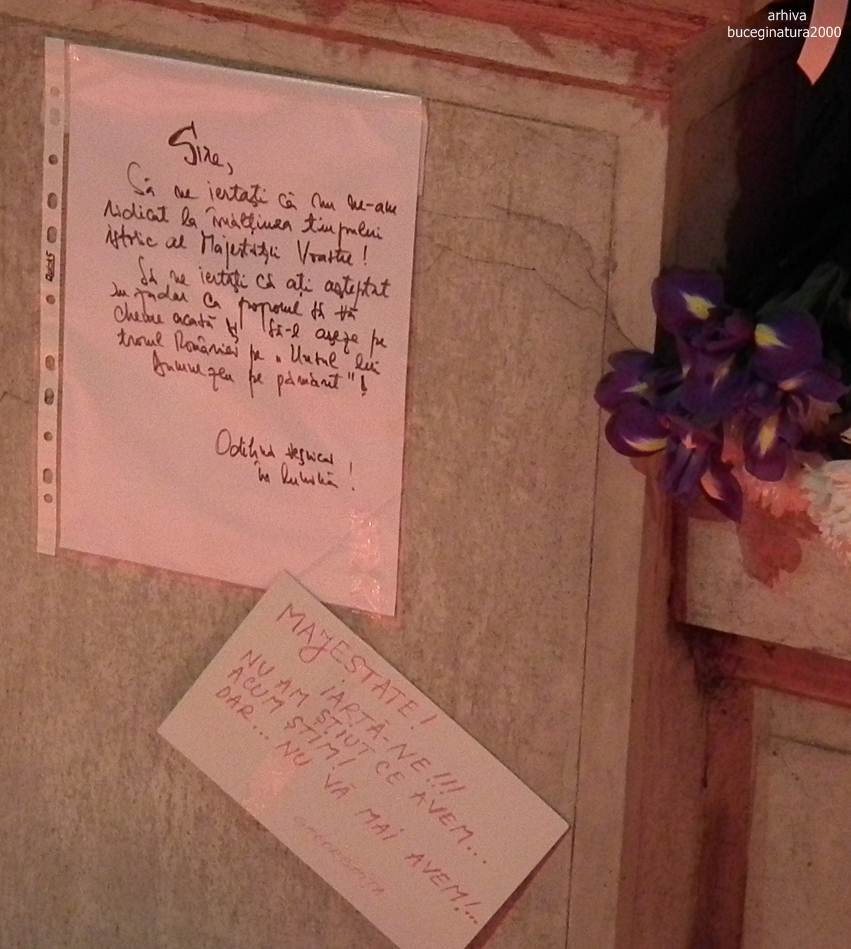 arhiva
buceginatura2000
Sire,
Să ne iertați că nu ne-am
ridicat la înălțimea timpului
istoric al Majestății Voastre!
Să ne iertați că ați așteptat
în zadar ca poporul să vă
cheme acasă și să-l așeze pe
tronul României pe „Unsul lui
Dumnezeu pe pământ"!
Odihnă veșnică
în lumină!
MAJESTATE!
IARTĂ-NE!!!
NU AM ȘTIUT CE AVEM...
ACUM ȘTIM!
DAR... NU VĂ MAI AVEM!...